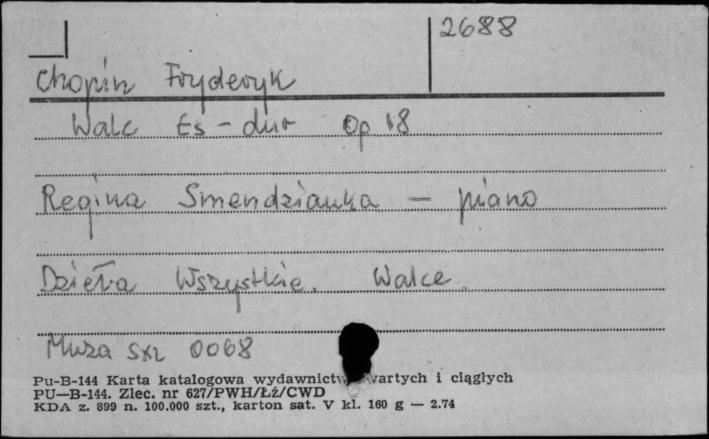 2688
Chopin Fryderyk
Walc Es-dur Op 18
Regina Smendzianka - piano
Dzieła Wszystkie. Walce.
Muza SXL 0068
Pu-B-144 Karta katalogowa wydawnictw zwartych i ciągłych
PU—B-144. Zlec. nr 627/PWH/Łż/CWD
KDA z. 899 n. 100.000 szt., karton sat. V kl. 160 g — 2.74